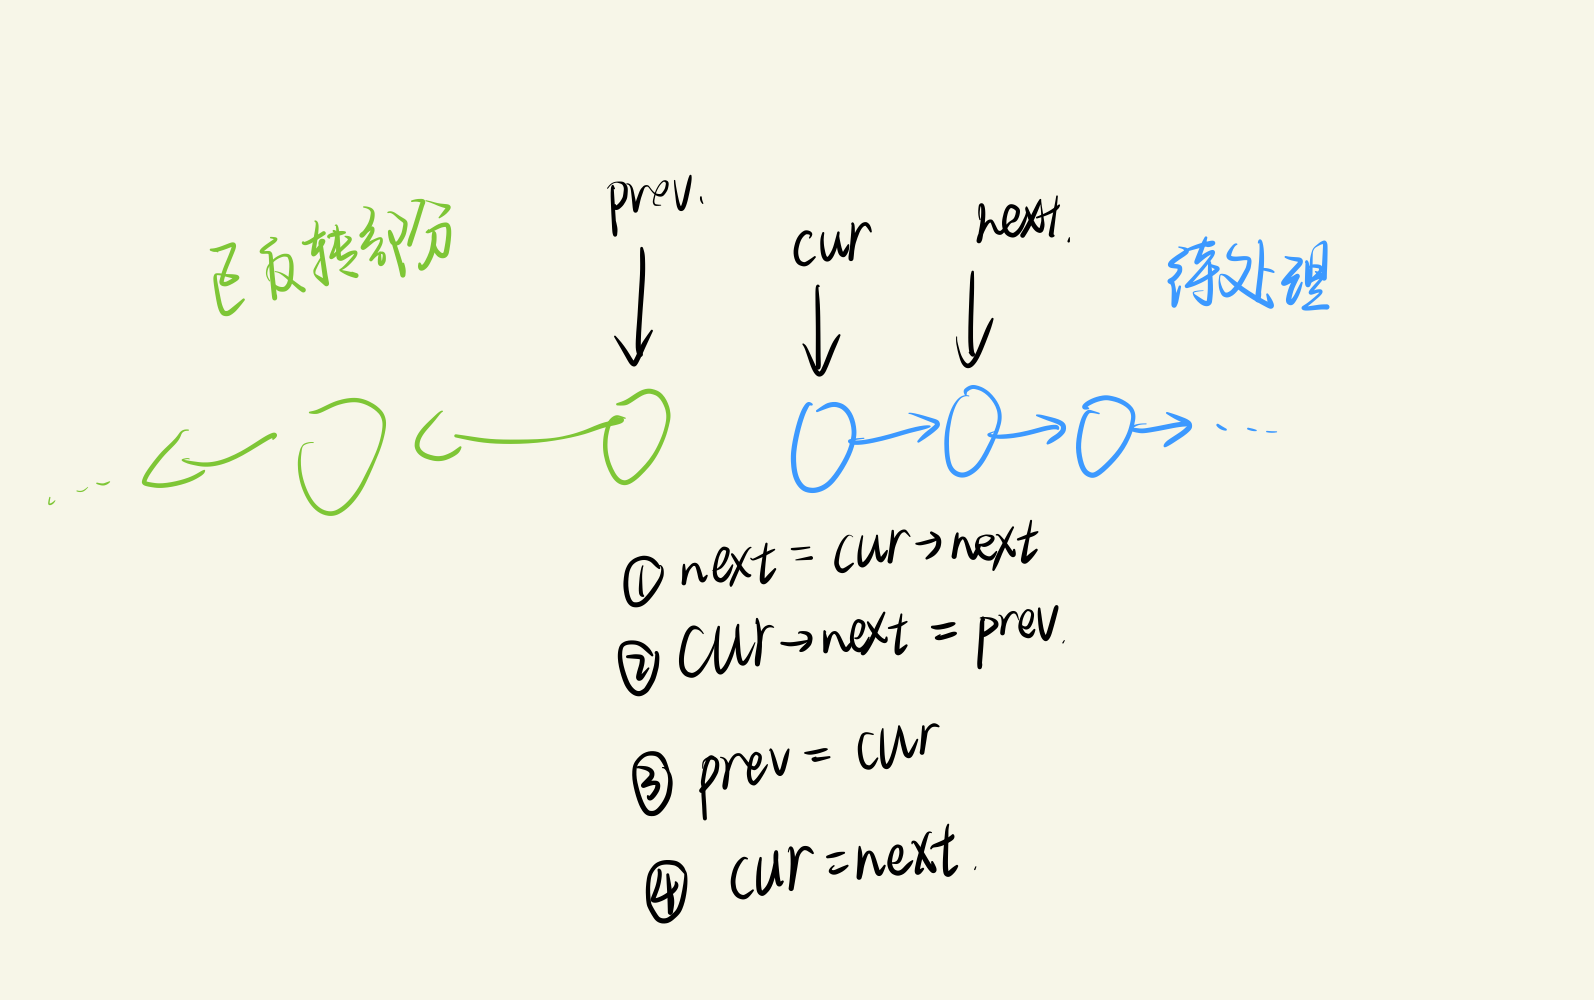 prev.
已反转部份
cur
next.
待处理
...
...
① next = cur→next
② cur→next = prev.
③ prev = cur
④ cur = next.